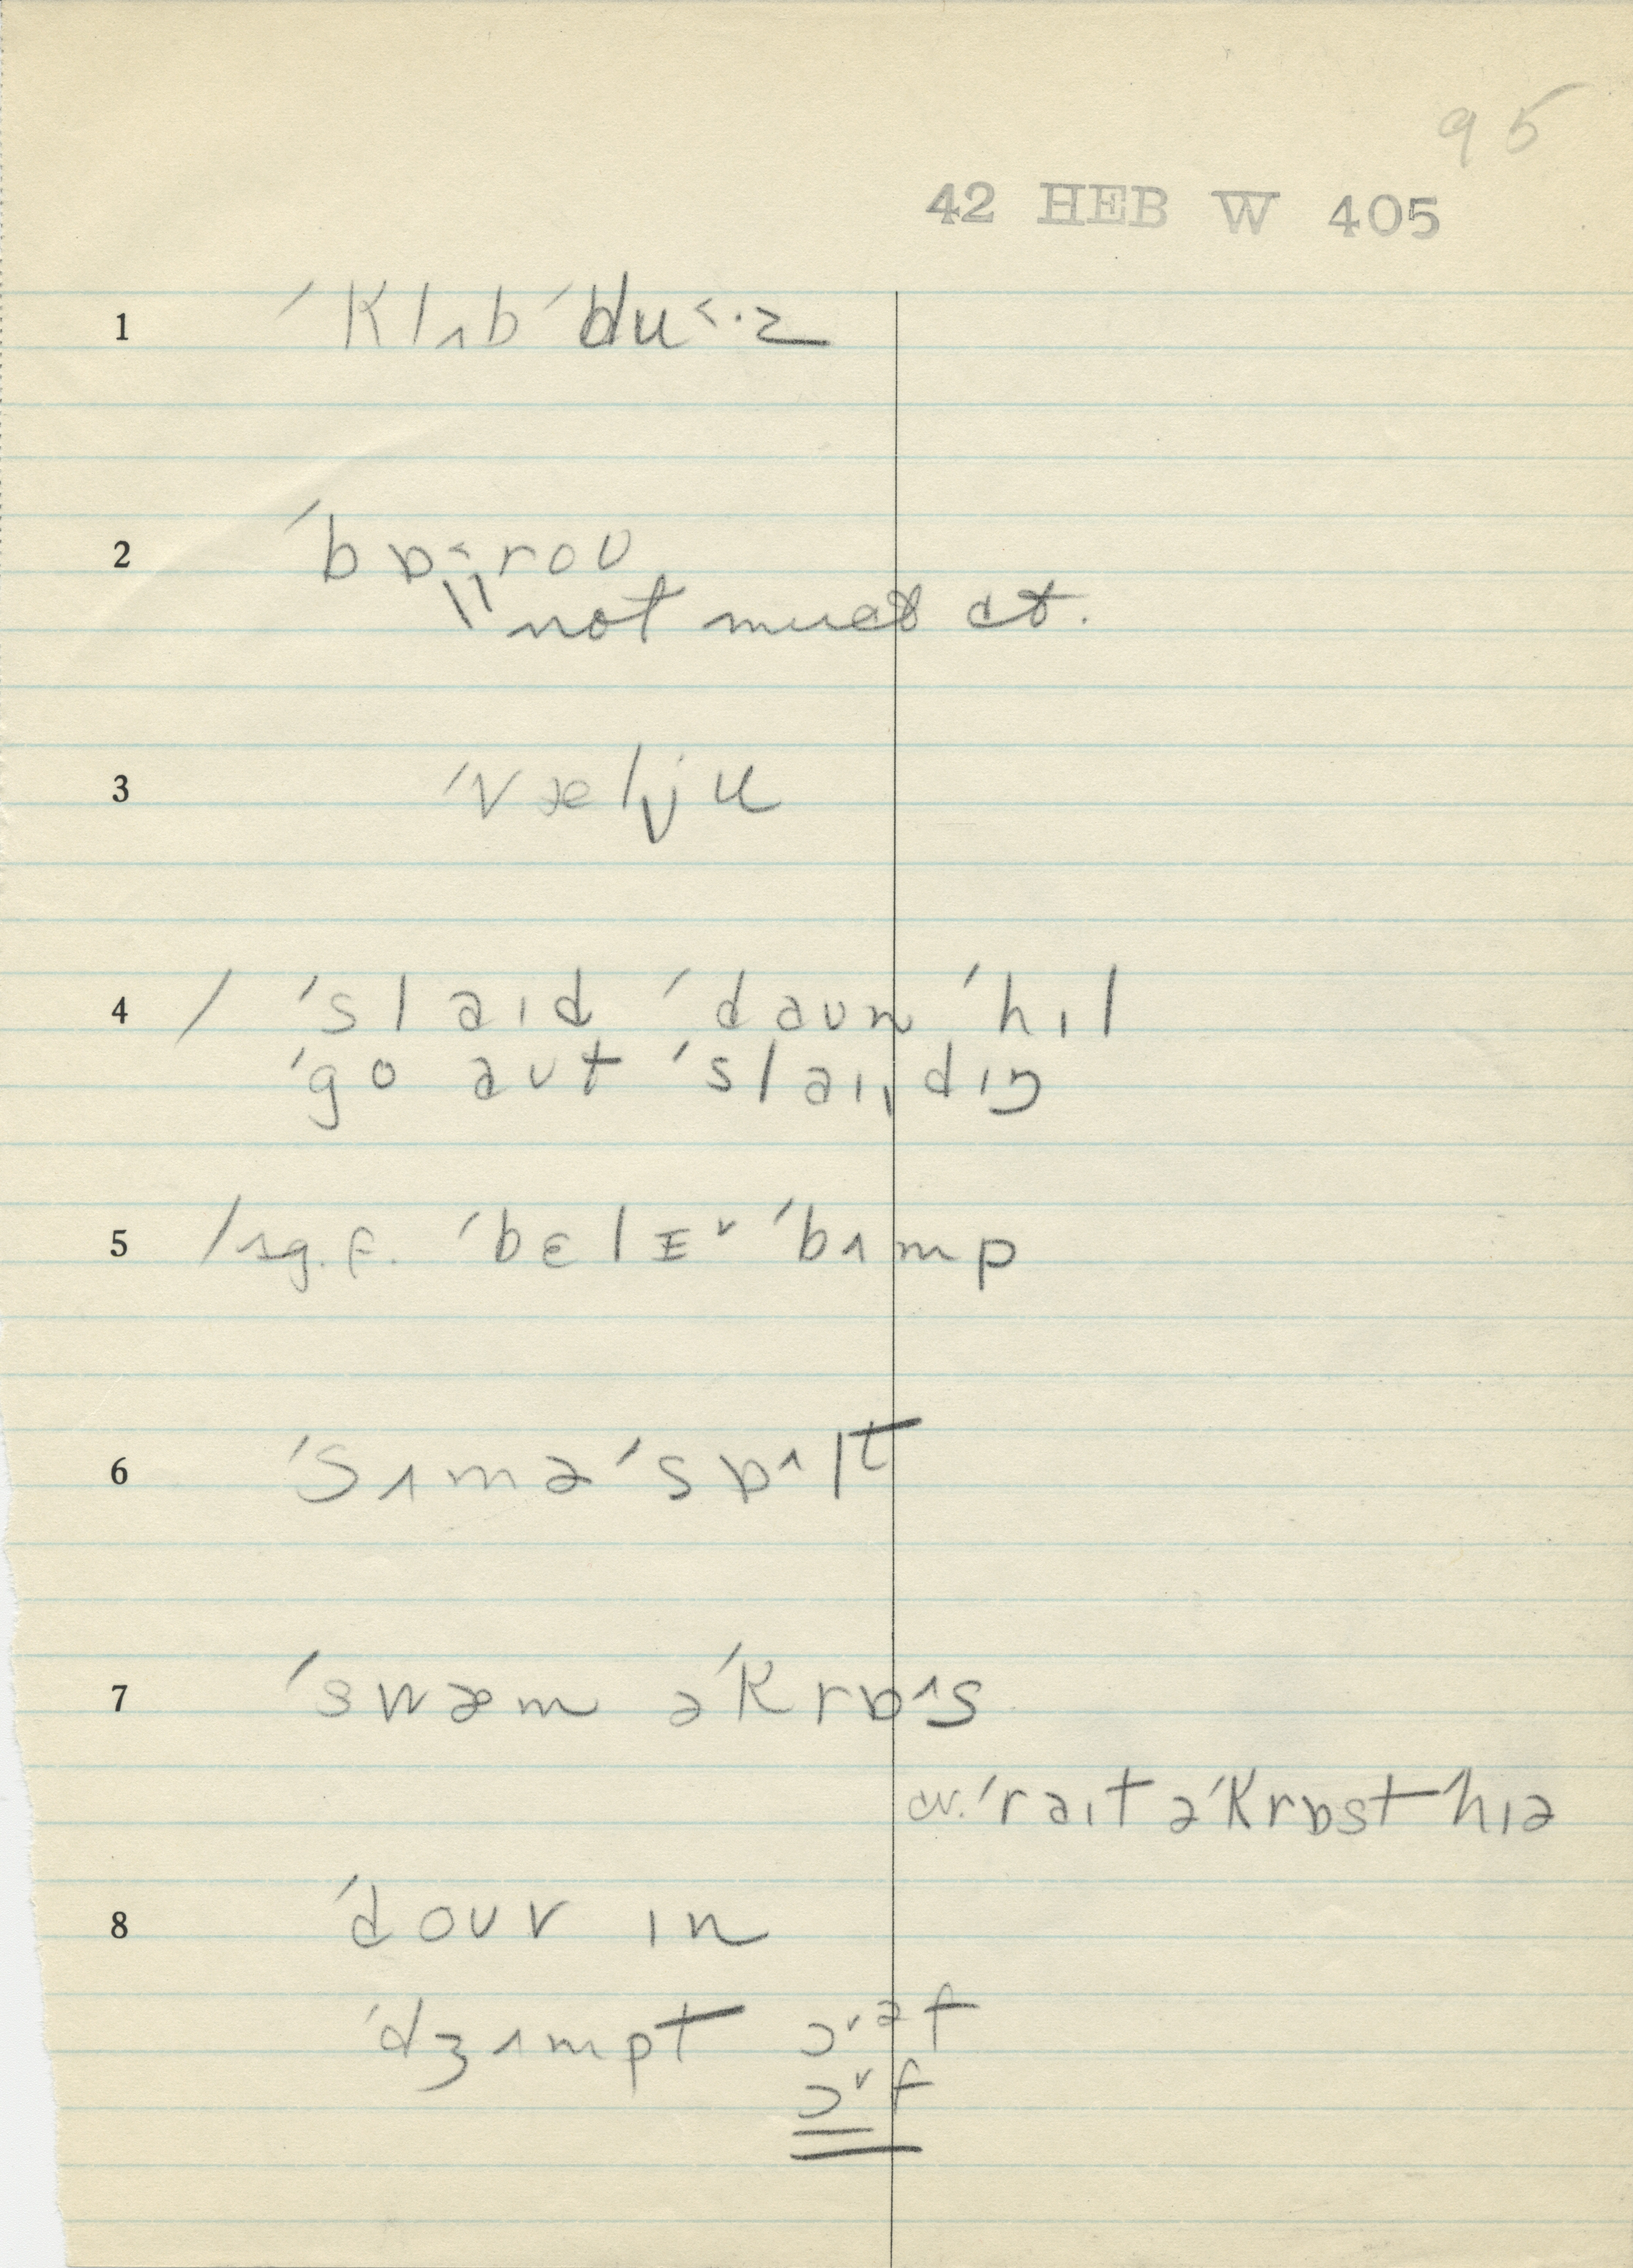 95
42 HEB W 405
1 ´klʌb ´du˂·z
2 ´bɒ˂roʊ
not much ct.
3 ´vælju
4 / ´slaɪd ´daʊn ´hɪl
´go aʊt ´slaɪdɪŋ
5 / sg. f. ´bɛlɪ˅ ´bʌmp
6 ´sʌmə´sɒ˄lt
7 ´swæm ə´krɒ˄s
cv. ´raɪt ə´krɒst hɪə
8 ´doʊv ɪn
´dʒʌmpt ɔ˅əf
ɔ˅f